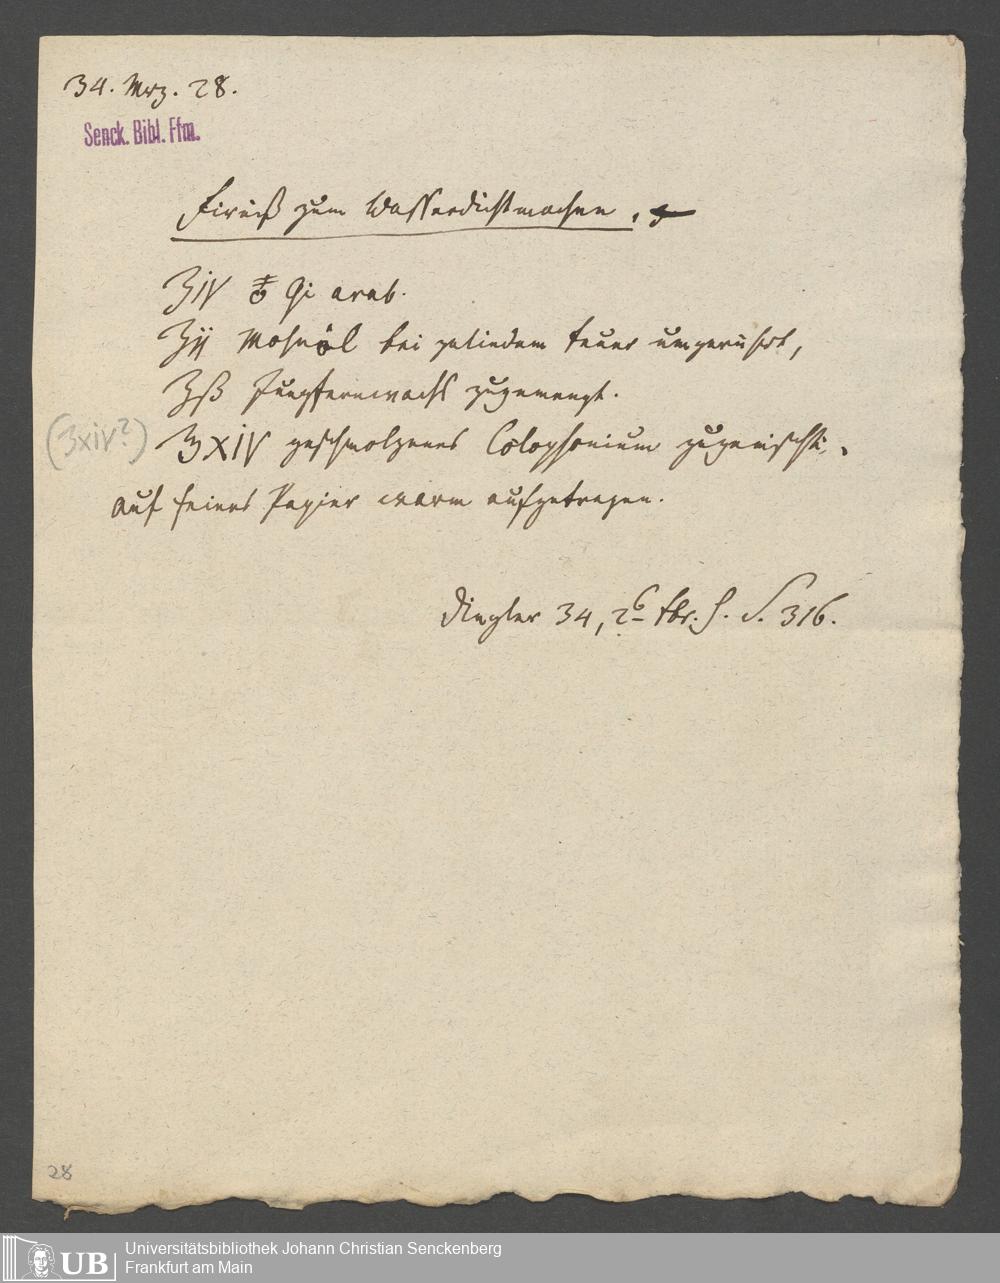 34. Mrz. 28.
Senck. Bibl. Ffm.
Firniß zum Wasserdichtmachen.
℥iv Gi arab.
℥ij Mohnöl bei gelindem Feuer umgerührt,
℥ß Jungfernwachs zugemengt.
(℥xiv?) ℥xiv geschmolzenes Colophonium zugemischt.
auf feines Papier warm aufgetragen.
Dingler 34, 2 S. 316.
28
UB Universitätsbibliothek Johann Christian Senckenberg
Frankfurt am Main